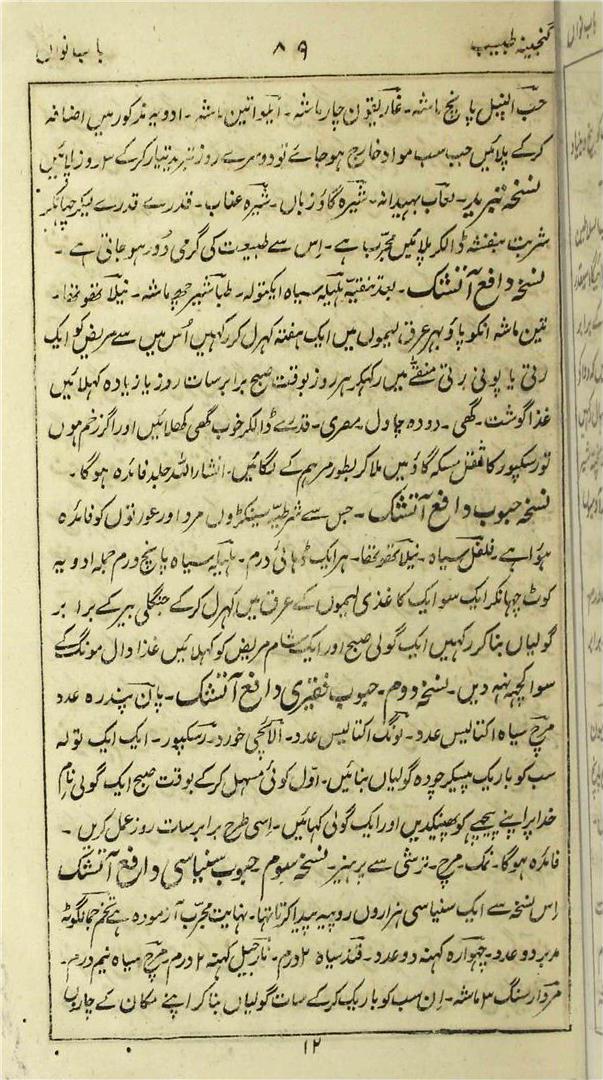 گنجینہ طبیب ۸۹ باب نواں
حب النیل پانچ ماشہ۔ غاریقون چار ماشہ۔ ایلوا تین ماشہ۔ ادویہ مذکور میں اضافہ
کر کے پلائیں جب سب مواد خارج ہو جائے تو دوسرے روز تبرید تیار کر کے ۳ روز پلائیں
نسخہ تبرید۔ لعاب بہیدانہ۔ شیرہ گاؤزباں۔ شیرہ عناب۔ قدرے قدرے لیکر چہانکر
شربت بنفشہ ڈالکر پلائیں مجرب ہے۔ اس سے طبیعت کی گرمی دور ہو جاتی ہے۔
نسخہ دافع آتشک۔ بعد تنقیہ ہلیلہ سیاہ ایکتولہ۔ طباشیر چھ ماشہ۔ نیلا تھوتھا۔
تین ماشہ انکو پاؤ بہر عرق لیموں میں ایک ہفتہ کہرل کر رکہیں اُس میں سے مریض کو ایک
رتی یا پونی رتی منقے میں رکہکر ہر روز بوقت صبح برابر سات روز یا زیادہ کہلائیں
غذا گوشت۔ گھی۔ دودہ چاول مصری۔ قدرے ڈالکر خوب گھی کھلائیں اور اگر زخم ہوں
تو رسکپور کا ثفل مسکہ گاؤ میں ملا کر بطور مرہم کے لگائیں۔ انشاراللہ جلد فائدہ ہوگا۔
نسخہ حبوب دافع آتشک۔ جس سے شرطیہ سینکڑوں مرد اور عورتوں کو فائدہ
ہوا ہے۔ فلفل سیاہ۔ نیلا تھوتھا۔ ہر ایک ڈہائی درم۔ ہلیلہ سیاہ پانچ درم جملہ ادویہ
کوٹ چہانکر ایک سو ایک کاغذی لیموں کے عرق میں کہرل کر کے جنگلی بیر کے برابر
گولیاں بنا کر رکہیں ایک گولی صبح اور ایک شام مریض کو کہلائیں غذا دال مونگ کے
سوا کچہہ نہ دیں۔ نسخہ دوم۔ حبوب فقیری دافع آتشک۔ پان پندرہ عدد
مرچ سیاہ اکتالیس عدد۔ لونگ اکتالیس عدد۔ الائچی خورد۔ رسکپور۔ ایک ایک تولہ
سب کو باریک پیسکر چودہ گولیاں بنائیں۔ اول کوئی مسہل کر کے بوقت صبح ایک گولی نام
خدا پر اپنے پیچہے کو پہینکدیں اور ایک گولی کہائیں۔ اسی طرح برابر سات روز عمل کریں۔
فائدہ ہوگا۔ نمک۔ مرچ۔ ترشی سے پرہیز۔ نسخہ سوم حبوب سنیاسی دافع آتشک
اِس نسخہ سے ایک سنیاسی ہزاروں روپیہ پیدا کرتا تہا۔ نہایت مجرب آزمودہ ہے تخم جمالگوٹہ
مدبر دو عدد۔ چہوارہ کہنہ دو عدد۔ قند سیاہ ۲ درم۔ نارجیل کہنہ ۲ درم مرچ سیاہ نیم درم۔
مردار سنگ ۳ ماشہ۔ اِن سب کو باریک کر کے سات گولیاں بنا کر اپنے مکان کے چاروں
۱۲